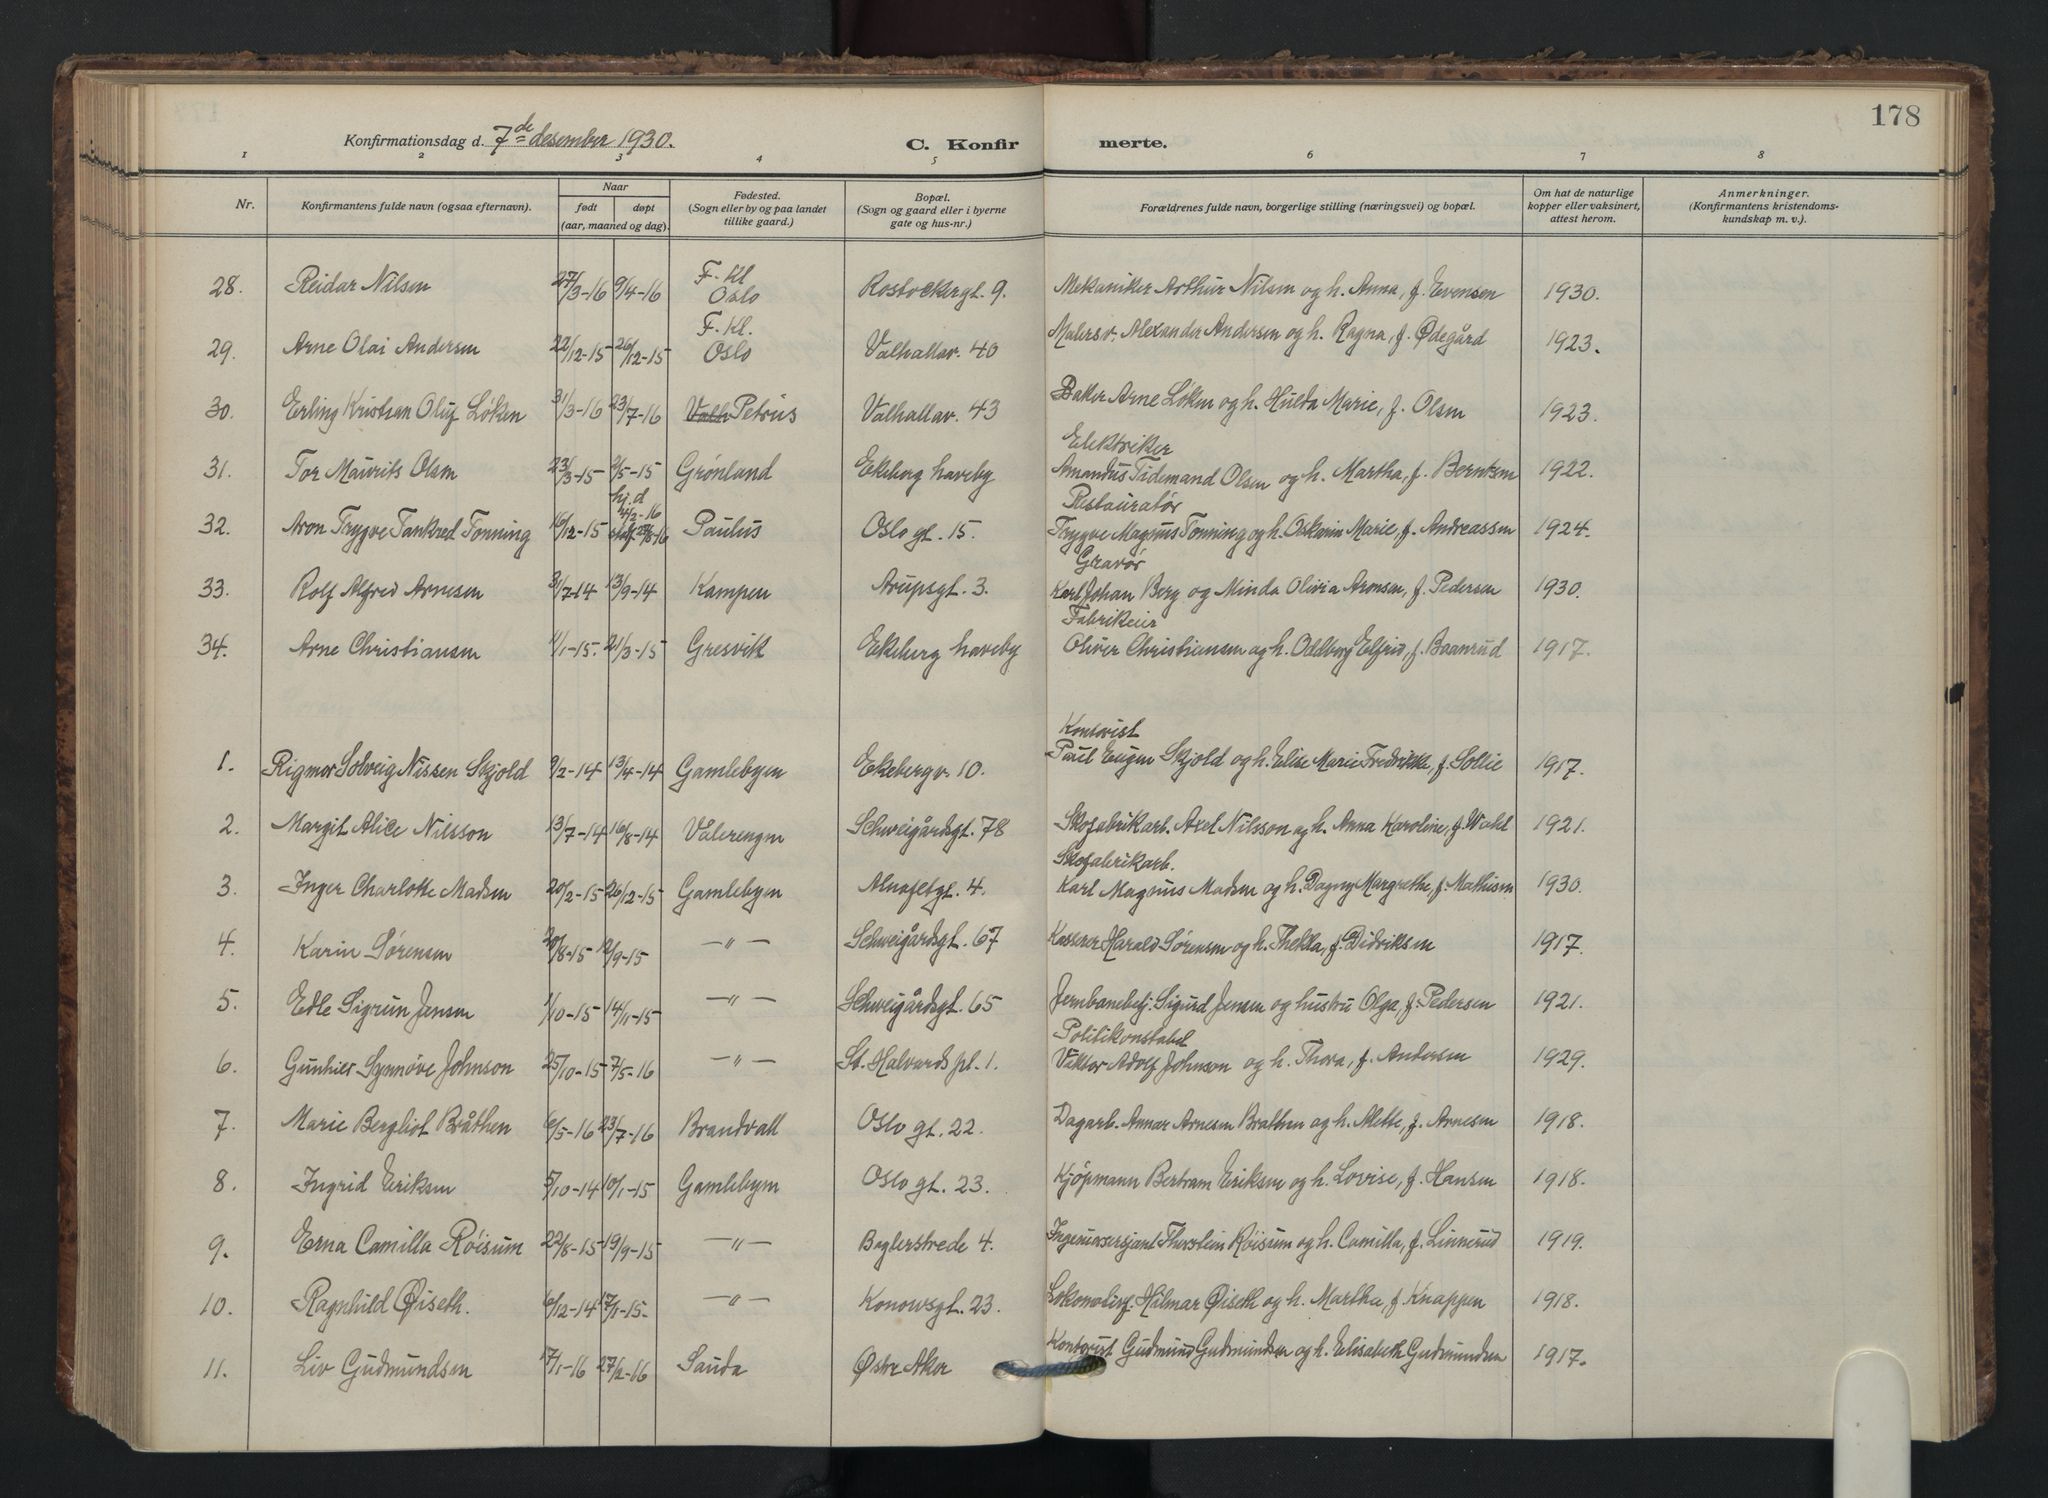 178
Konfirmationsdag d. 7de desember 1930.
C. Konfirmerte.
1 2 3 4 5 6 7 8
Nr.
Konfirmantens fulde navn (ogsaa efternavn).
Naar
født døpt
(aar, maaned og dag).
Fødested.
(Sogn eller by og paa landet
tillike gaard.)
Bopæl.
(Sogn og gaard eller i byerne
gate og hus-nr.)
Forældrenes fulde navn, borgerlige stilling (næringsvei) og bopæl.
Om hat de naturlige
kopper eller vaksinert,
attest herom.
Anmerkninger.
(Konfirmantens kristendoms-
kundskap m. v.).
28. Reidar Nilsen 27/3-16 9/4-16 F. Kl Oslo Rostockergt. 9. Mekaniker Arthur Nilsen og h. Anna, f. Evensen 1930.
29. Arne Olai Andersen 22/12-15 26/12-15 F. Kl. Oslo Valhallav. 40 Malersv. Alexander Andersen og h. Ragna, f. Ødegård 1923.
30. Erling Kristian Oluf Löken 31/3-16 23/7-16 Petrus Valhallav. 43 Baker Arne Löken og h. Hulda Marie, f. Olsen 1923.
31. Tor Maurits Olsen 23/3-15 2/5-15 Grønland Ekeberg haveby Elektriker Amandus Tidemand Olsen og h. Martha, f. Berntsen 1922.
32. Aron Trygve Tankred Tonning 16/12-15 hj.d 14/2-16 stadf 27/8-16 Paulus Oslo gt. 15. Restauratør Trygve Magnus Tonning og h. Oskarin Marie, f. Andreassen 1924.
33. Rolf Alfred Arnesen 31/7-14 13/9-14 Kampen Arupsgt. 3. Gravør Karl Johan Berg og Minda Olivia Aronsen, f. Pedersen 1930.
34. Arne Christiansen 11/1-15. 21/3-15 Gresvik Ekeberg haveby Fabrikeier Oliver Christiansen og h. Oddborg Elfrid, f. Baanrud 1917.
1. Rigmor Solveig Nissen Skjold 9/2-14 13/4-14 Gamlebyen Ekebergv. 10. Kontorist Paul Eugen Skjold og h. Elise Marie Fredrikke, f. Sollie 1917.
2. Margit Alice Nilsson 13/7-14 16/8-14 Vålerengen Schweigårdsgt. 78 Skofabrikarb. Axel Nilsson og h. Anna Karoline, f. Wahl 1921.
3. Inger Charlotte Madsen 20/2-15 26/12-15 Gamlebyen Alnafetgt. 4. Skofabrikarb. Karl Magnus Madsen og h. Dagny Margrethe, f. Mathisen 1930.
4. Karin Sörensen 20/8-15 12/9-15 —"— Schweigårdsgt. 67 Kasserer Harald Sörensen og h. Thekla, f. Didriksen 1917.
5. Edle Sigrun Jensen 1/10-15 14/11-15 —"— Schweigårdsgt. 65 Jernbanebetj. Sigurd Jensen og hustru Olga, f. Pedersen 1921.
6. Gunhier Synnöve Johnson 25/10-15 7/5-16 —"— St. Halvards pl. 1. Politikonstabel Viktor Adolf Johnson og h. Thora, f. Andersen 1929.
7. Marie Bergliot Bråthen 6/5-16 23/7-16 Brandvall Oslo gt. 22. Dagarb. Annar Arnesen Brathen og h. Alette, f. Arnesen 1918.
8. Ingrid Eriksen 5/10-14 10/1-15 Gamlebyen Oslo gt. 23. Kjøpmann Bertram Eriksen og h. Lovise, f. Hansen 1918.
9. Erna Camilla Röisum 22/8-15 19/9-15 —"— Baglerstrede 4. Ingeniørsersjant Thorstein Röisum og h. Camilla, f. Linnerud 1919.
10. Ragnhild Øiseth. 6/12-14 17/1-15. —"— Konowsgt. 23. Lokomotivf. Hilmar Øiseth og h. Martha, f. Knappen 1918.
11. Liv Gudmundsen 17/1-16 27/2-16 Sauda Østre Aker Kontorist Gudmund Gudmundsen og h. Elisabeth Gudmundsen 1917.